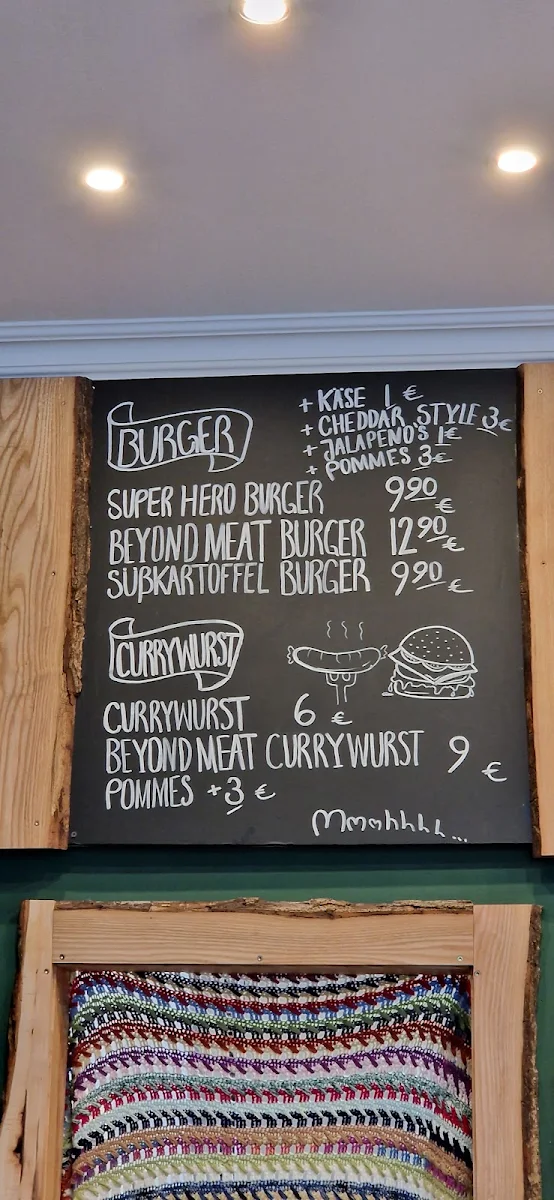 BURGER
+ KÄSE 1 €
+ CHEDDAR STYLE 3€
+ JALAPENO'S 1€
+ POMMES 3€
SUPER HERO BURGER 990 €
BEYOND MEAT BURGER 1290 €
SÜßKARTOFFEL BURGER 990 €
CURRYWURST
CURRYWURST 6 €
BEYOND MEAT CURRYWURST 9 €
POMMES +3 €
Mmohhhh...